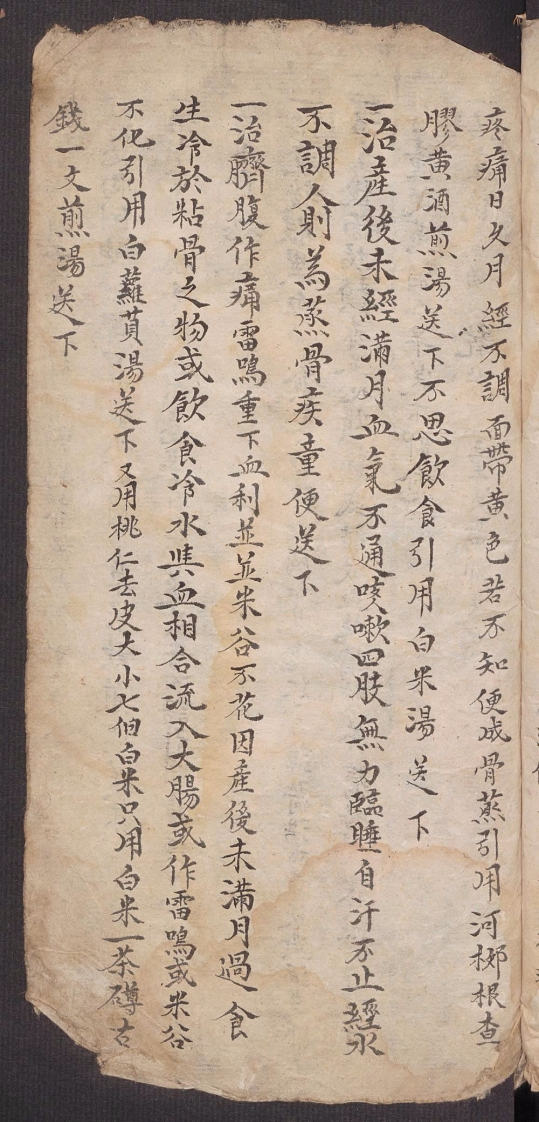 疼痛日久月經不調面帶黄色若不知便成骨蒸引用河梹根查
膠黄酒煎湯送下不思飲食引用白米湯送下
一治産後未經滿月血氣不通咳嗽四肢無力臨睡自汗不止經水
不調人則為蒸骨疾童便送下
一治臍腹作痛雷鳴重下血利並並米谷不花因産後未滿月過食
生冷於粘骨之物或飲食冷水與血相合流入大腸或作雷鳴或米谷
不化引用白蘿蔔湯送下又用桃仁去皮大小七個白米只用白米一茶罇古
錢一文煎湯送下